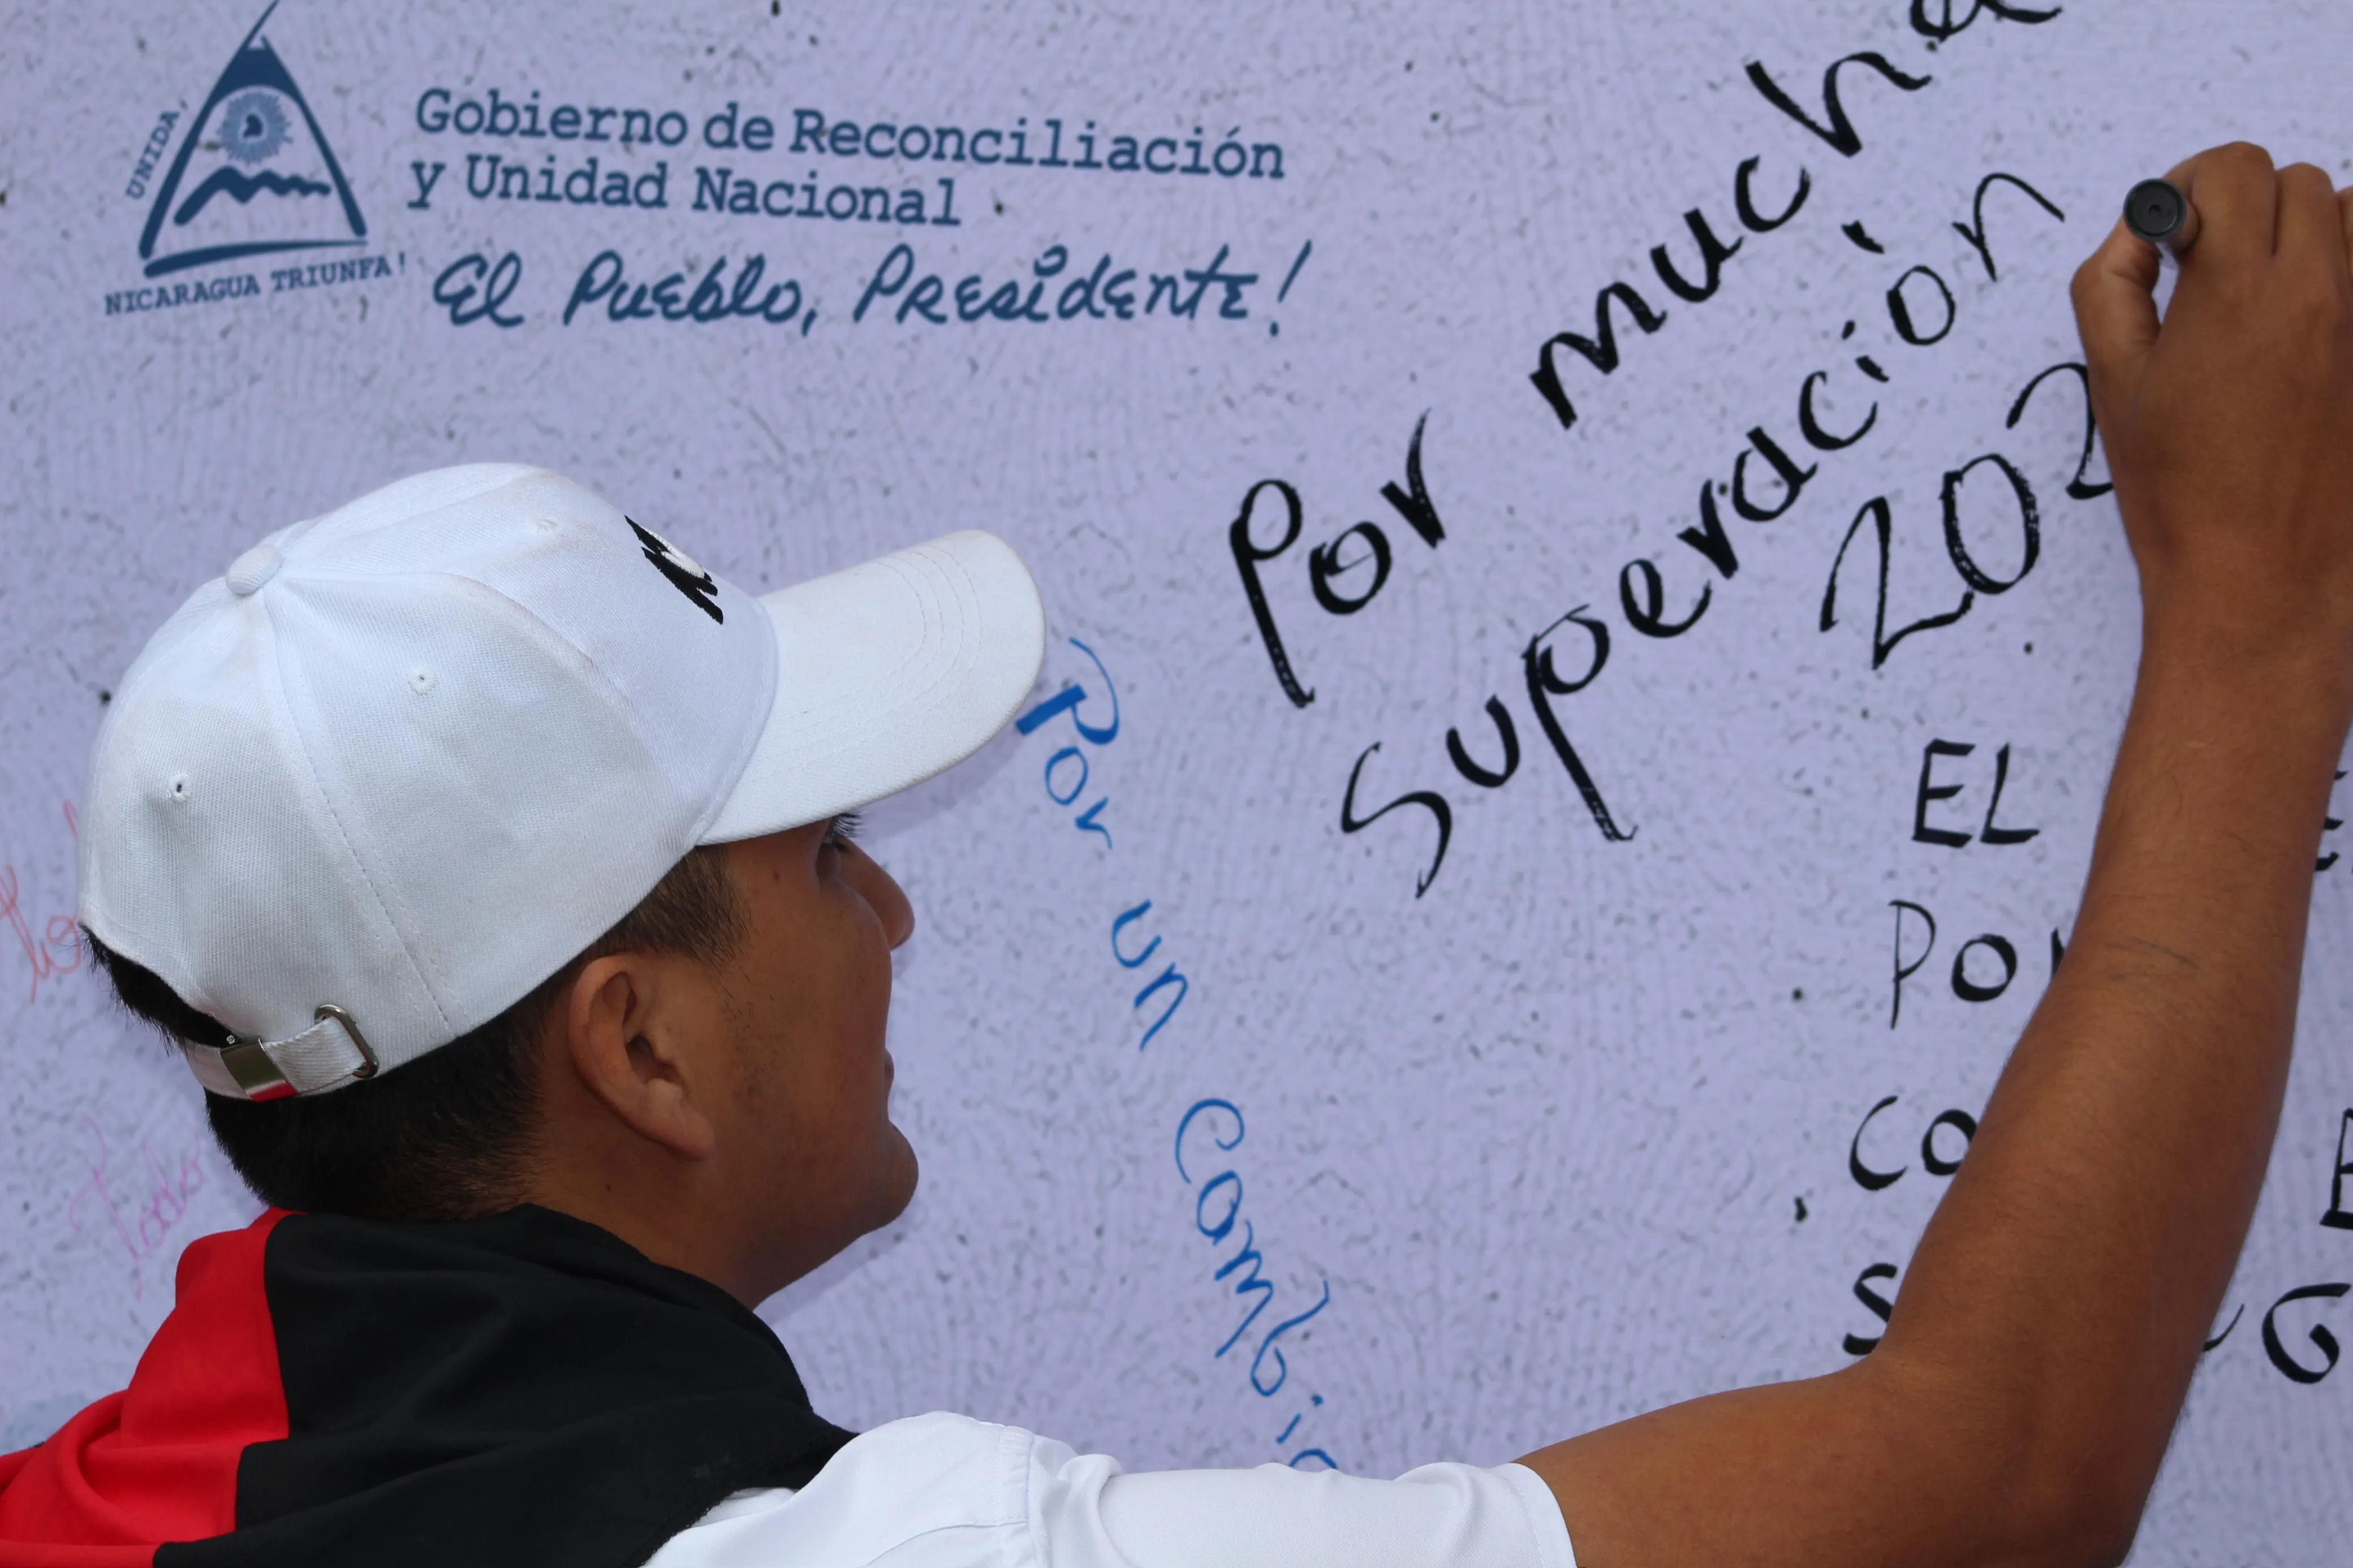 UNIDA,
NICARAGUA TRIUNFA!
Gobierno de Reconciliación
y Unidad Nacional
El Pueblo, Presidente!
Por mucha
Superación
202
Por un Cambio
EL
POR
CO
Todo